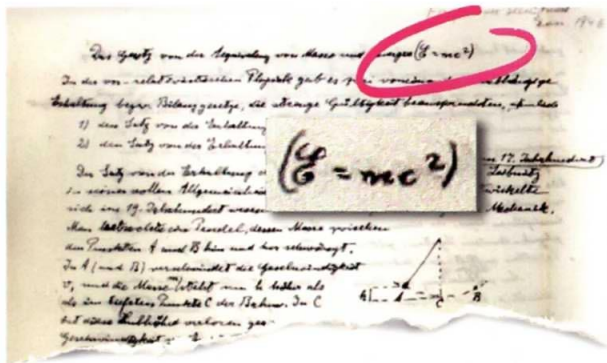 Jan. 1946
Das Gesetz von der Äquivalenz von Masse und Energie (E = mc²)
In der vor-relativistischen Physik gab es zwei voneinander unabhängige
Erhaltung bezw. Bilanzgesetze, die strenge Gültigkeit beanspruchten, nämlich
1) den Satz von der Erhaltung
2) den Satz von der Erhaltung
Der Satz von der Erhaltung
(E = mc²)
im 17. Jahrhundert)
Leibnitz
in seiner vollen Allgemeinheit
entwickelte
sich im 19. Jahrhundert
Mechanik.
Man betrachte ein Pendel, dessen Masse zwischen
den Punkten A und B hin und her schwingt.
In A (und B) verschwindet die Geschwindigkeit
v, und die Masse steht um h höher als
als im tiefsten Punkte C der Bahn. In C
ist diese Hubhöhe verloren ge-
Geschwindigkeit
A
C
B